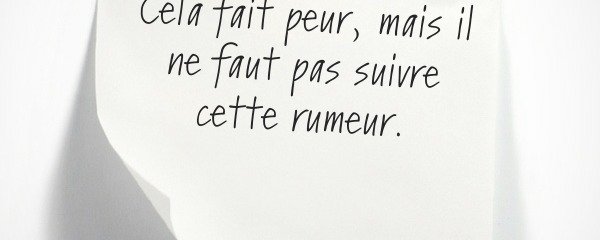 Cela fait peur, mais il
ne faut pas suivre
cette rumeur.